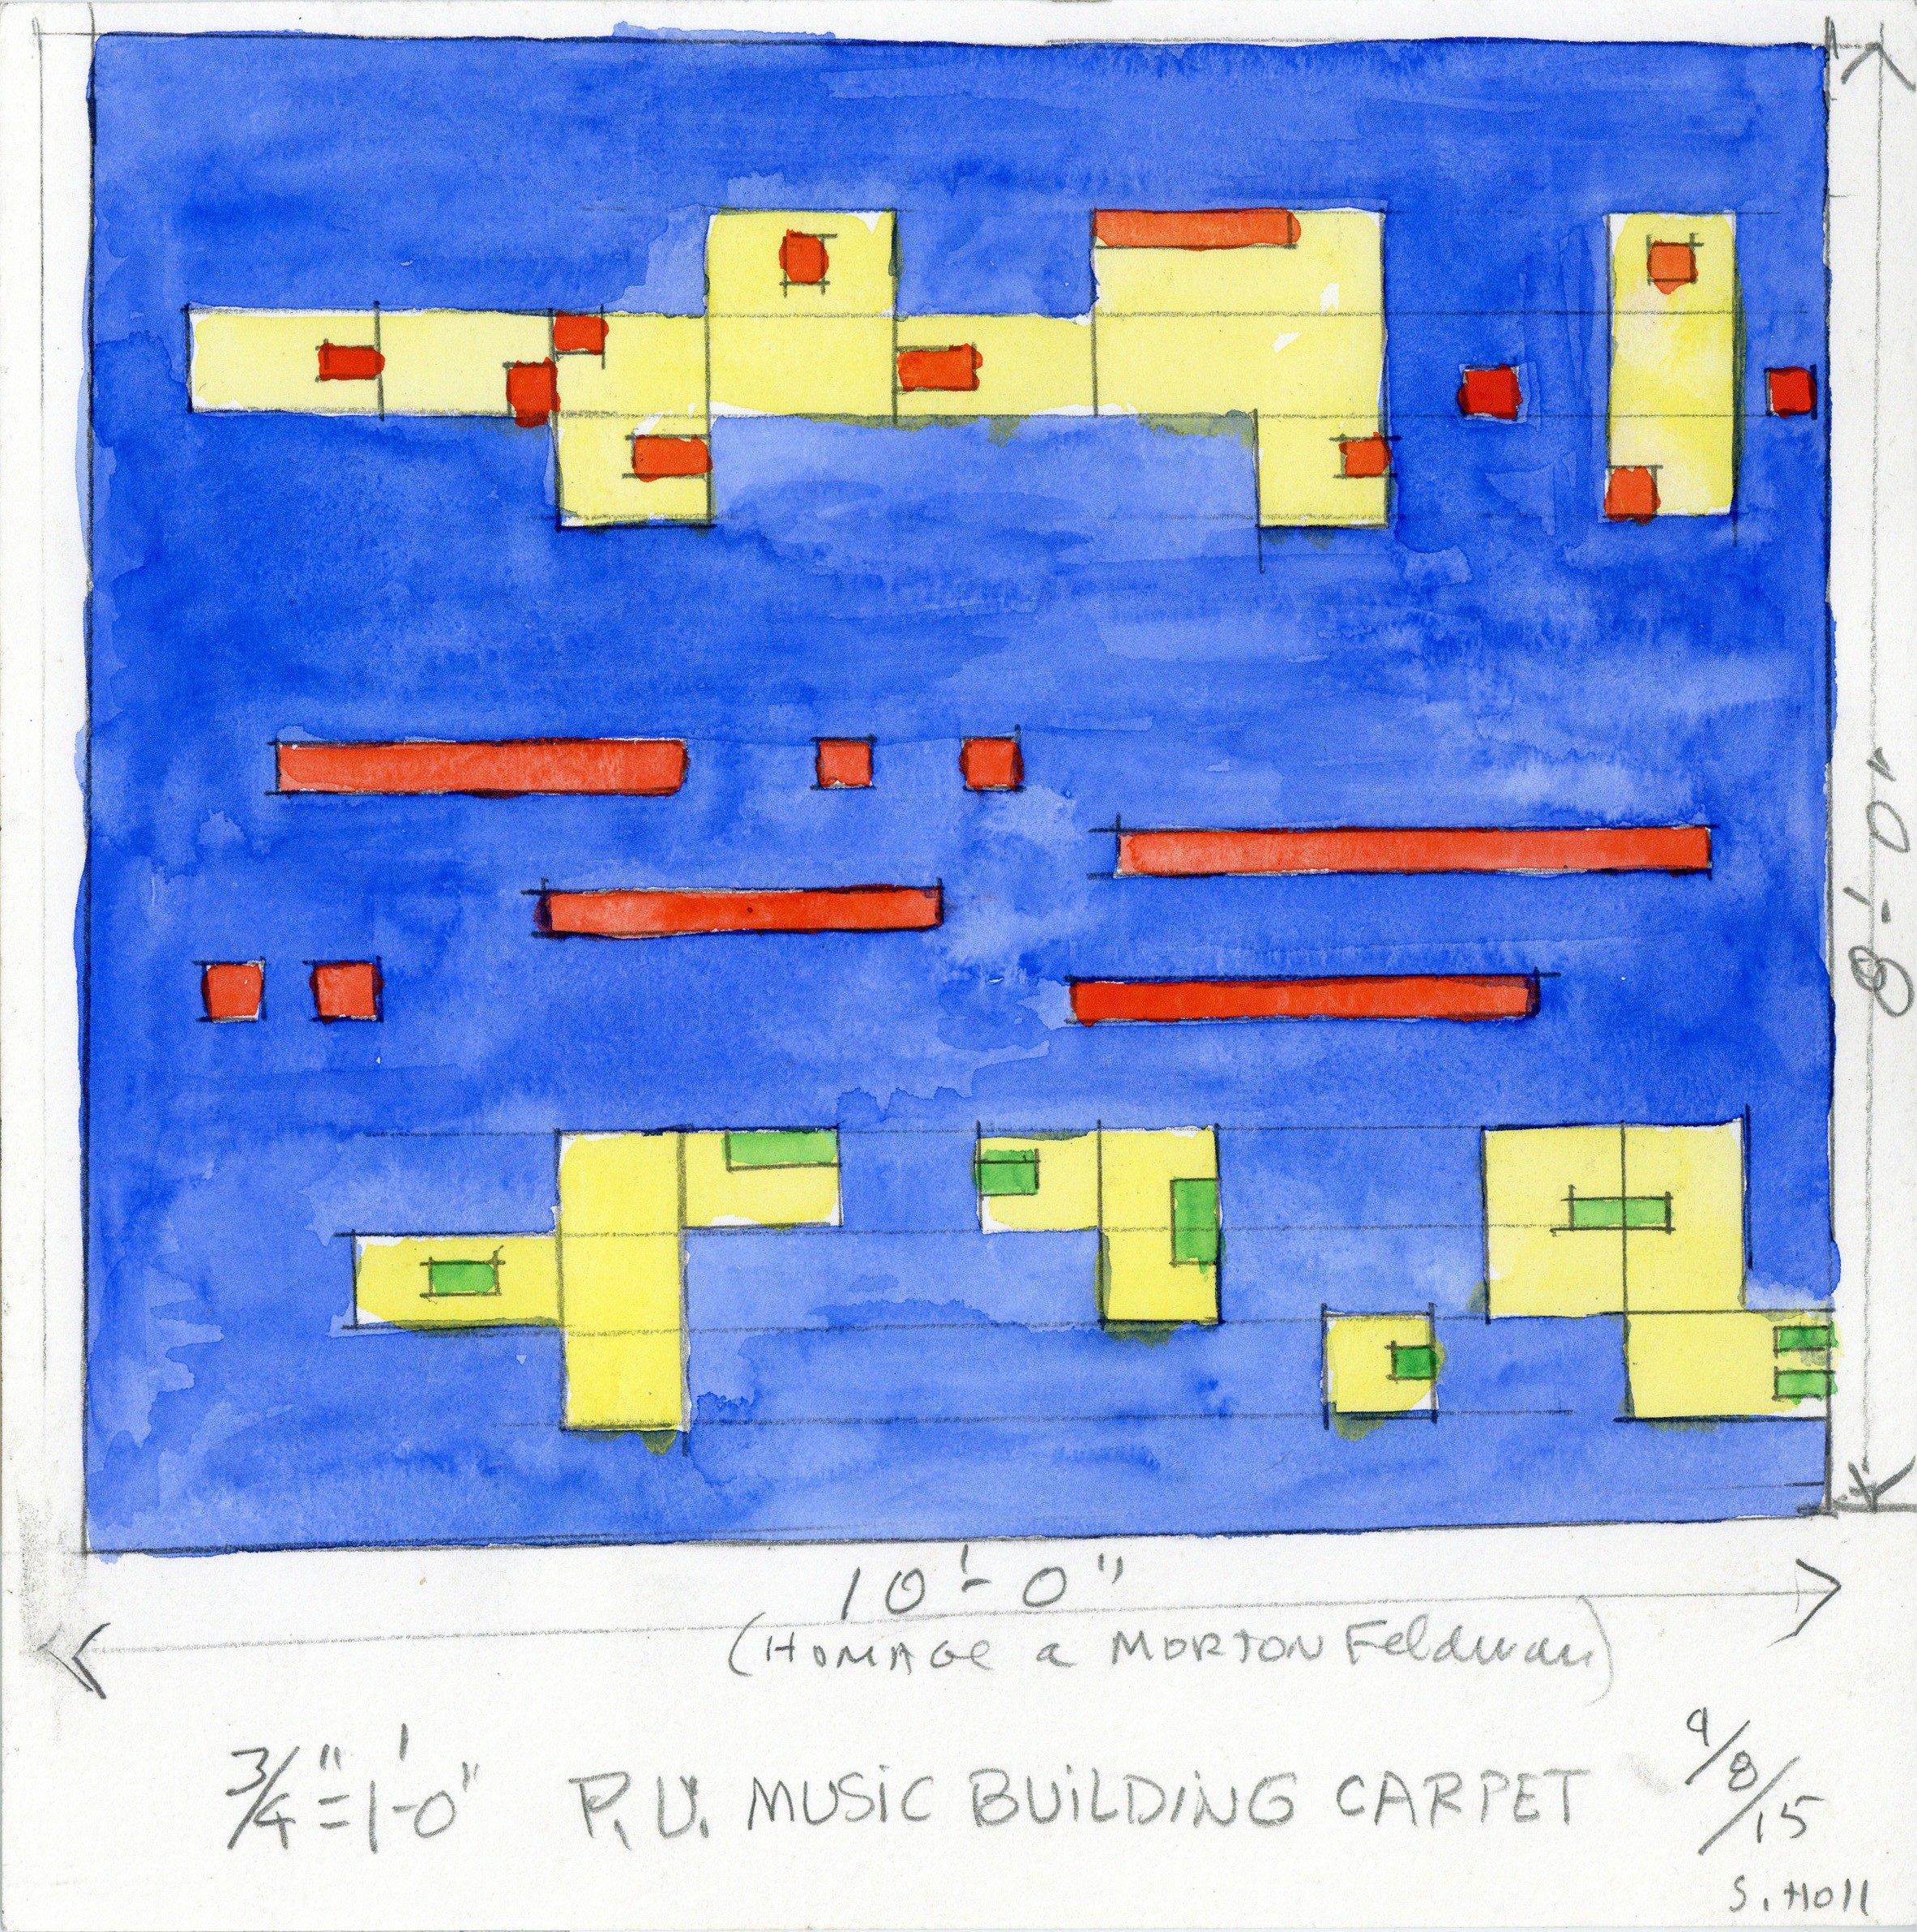 8'-0"
10'-0"
(HOMAGE a MORTON Feldman)
3/4"=1'-0" P.U. MUSIC BUILDING CARPET 9/8/15
S. Holl